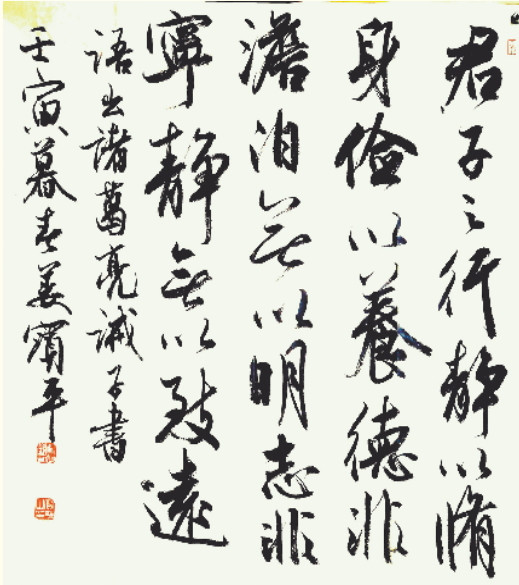 君子之行静以脩
身俭以養德非
澹泊无以明志非
寧静无以致遠
语出诸葛亮诫子書
壬寅暮春姜宾平